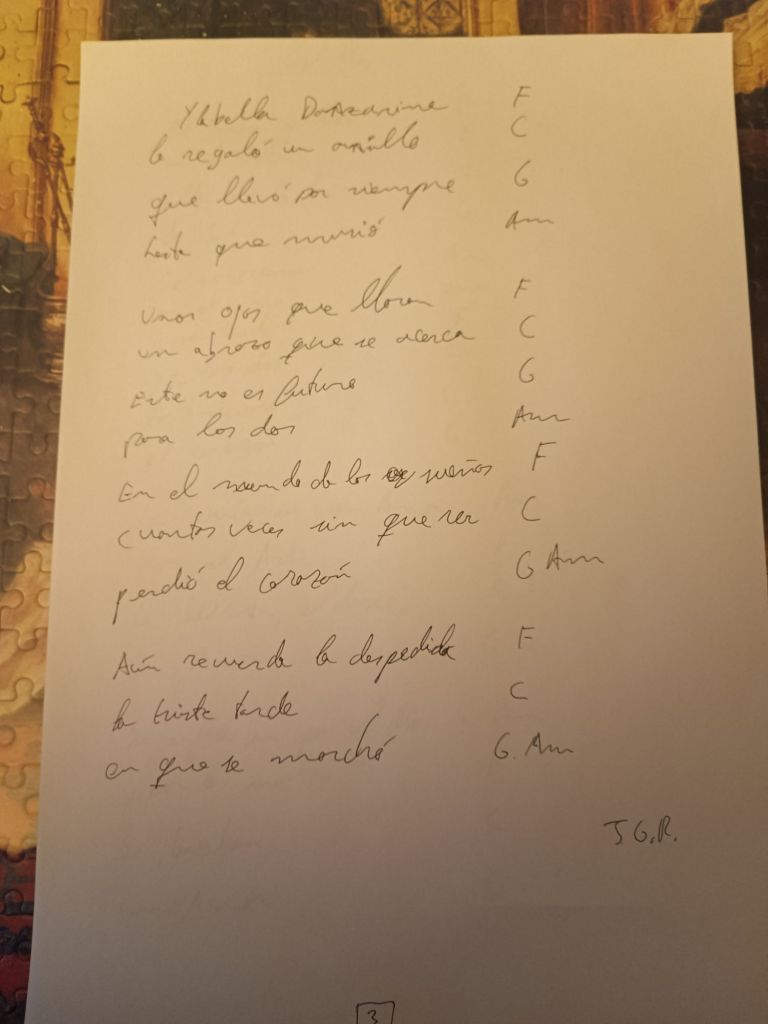 Ysbella Darzanine F
le regaló un anillo C
que llevó por siempre G
hasta que murió Am
Unos ojos que lloran F
un abrazo que se acerca C
Este no es futuro G
para los dos Am
En el mundo de los sueños F
cuantas veces sin querer C
perdió el corazón G Am
Aún recuerda la despedida F
la triste tarde C
en que se marchó G. Am
J G.R.
3